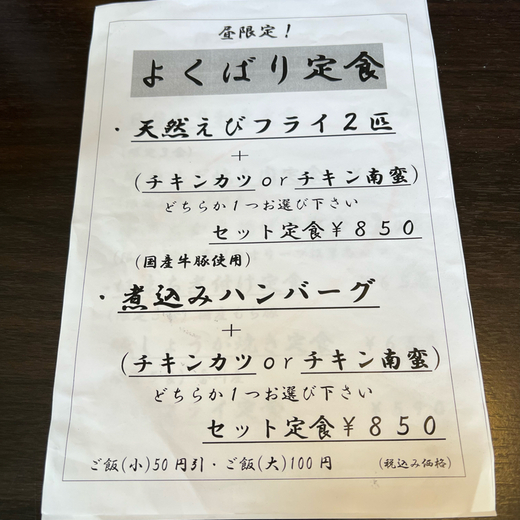 昼限定！
よくばり定食
・天然えびフライ２匹
＋
(チキンカツｏｒチキン南蛮)
どちらか１つお選び下さい
セット定食￥８５０
(国産牛豚使用)
・煮込みハンバーグ
＋
(チキンカツｏｒチキン南蛮)
どちらか１つお選び下さい
セット定食￥８５０
ご飯(小)50円引・ご飯(大)100円　(税込み価格)